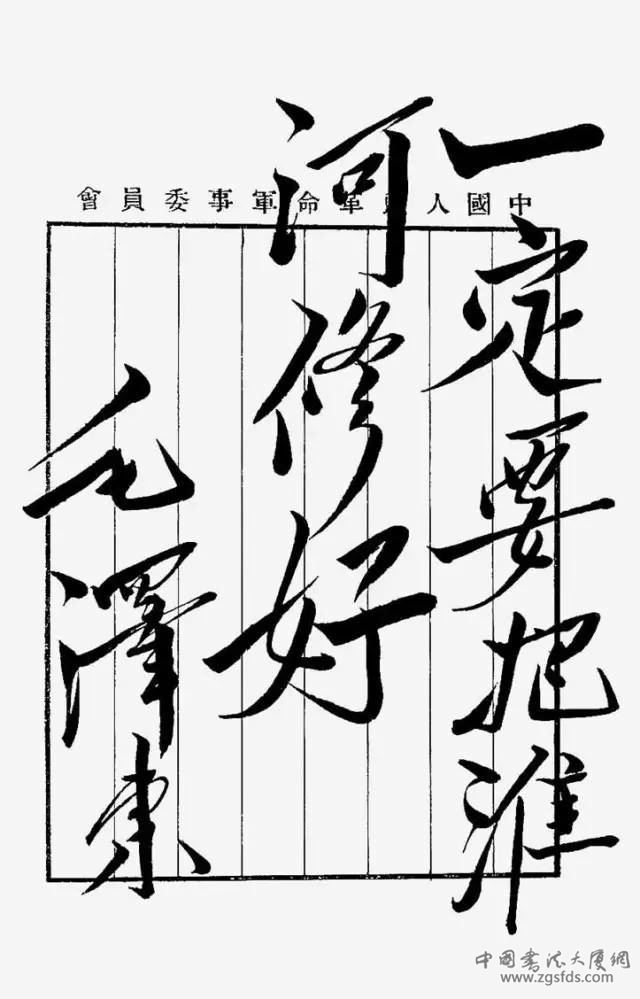 中國人民革命軍事委員會
一定要把淮
河修好
毛澤東
中國書法大廈網
www.zgsfds.com